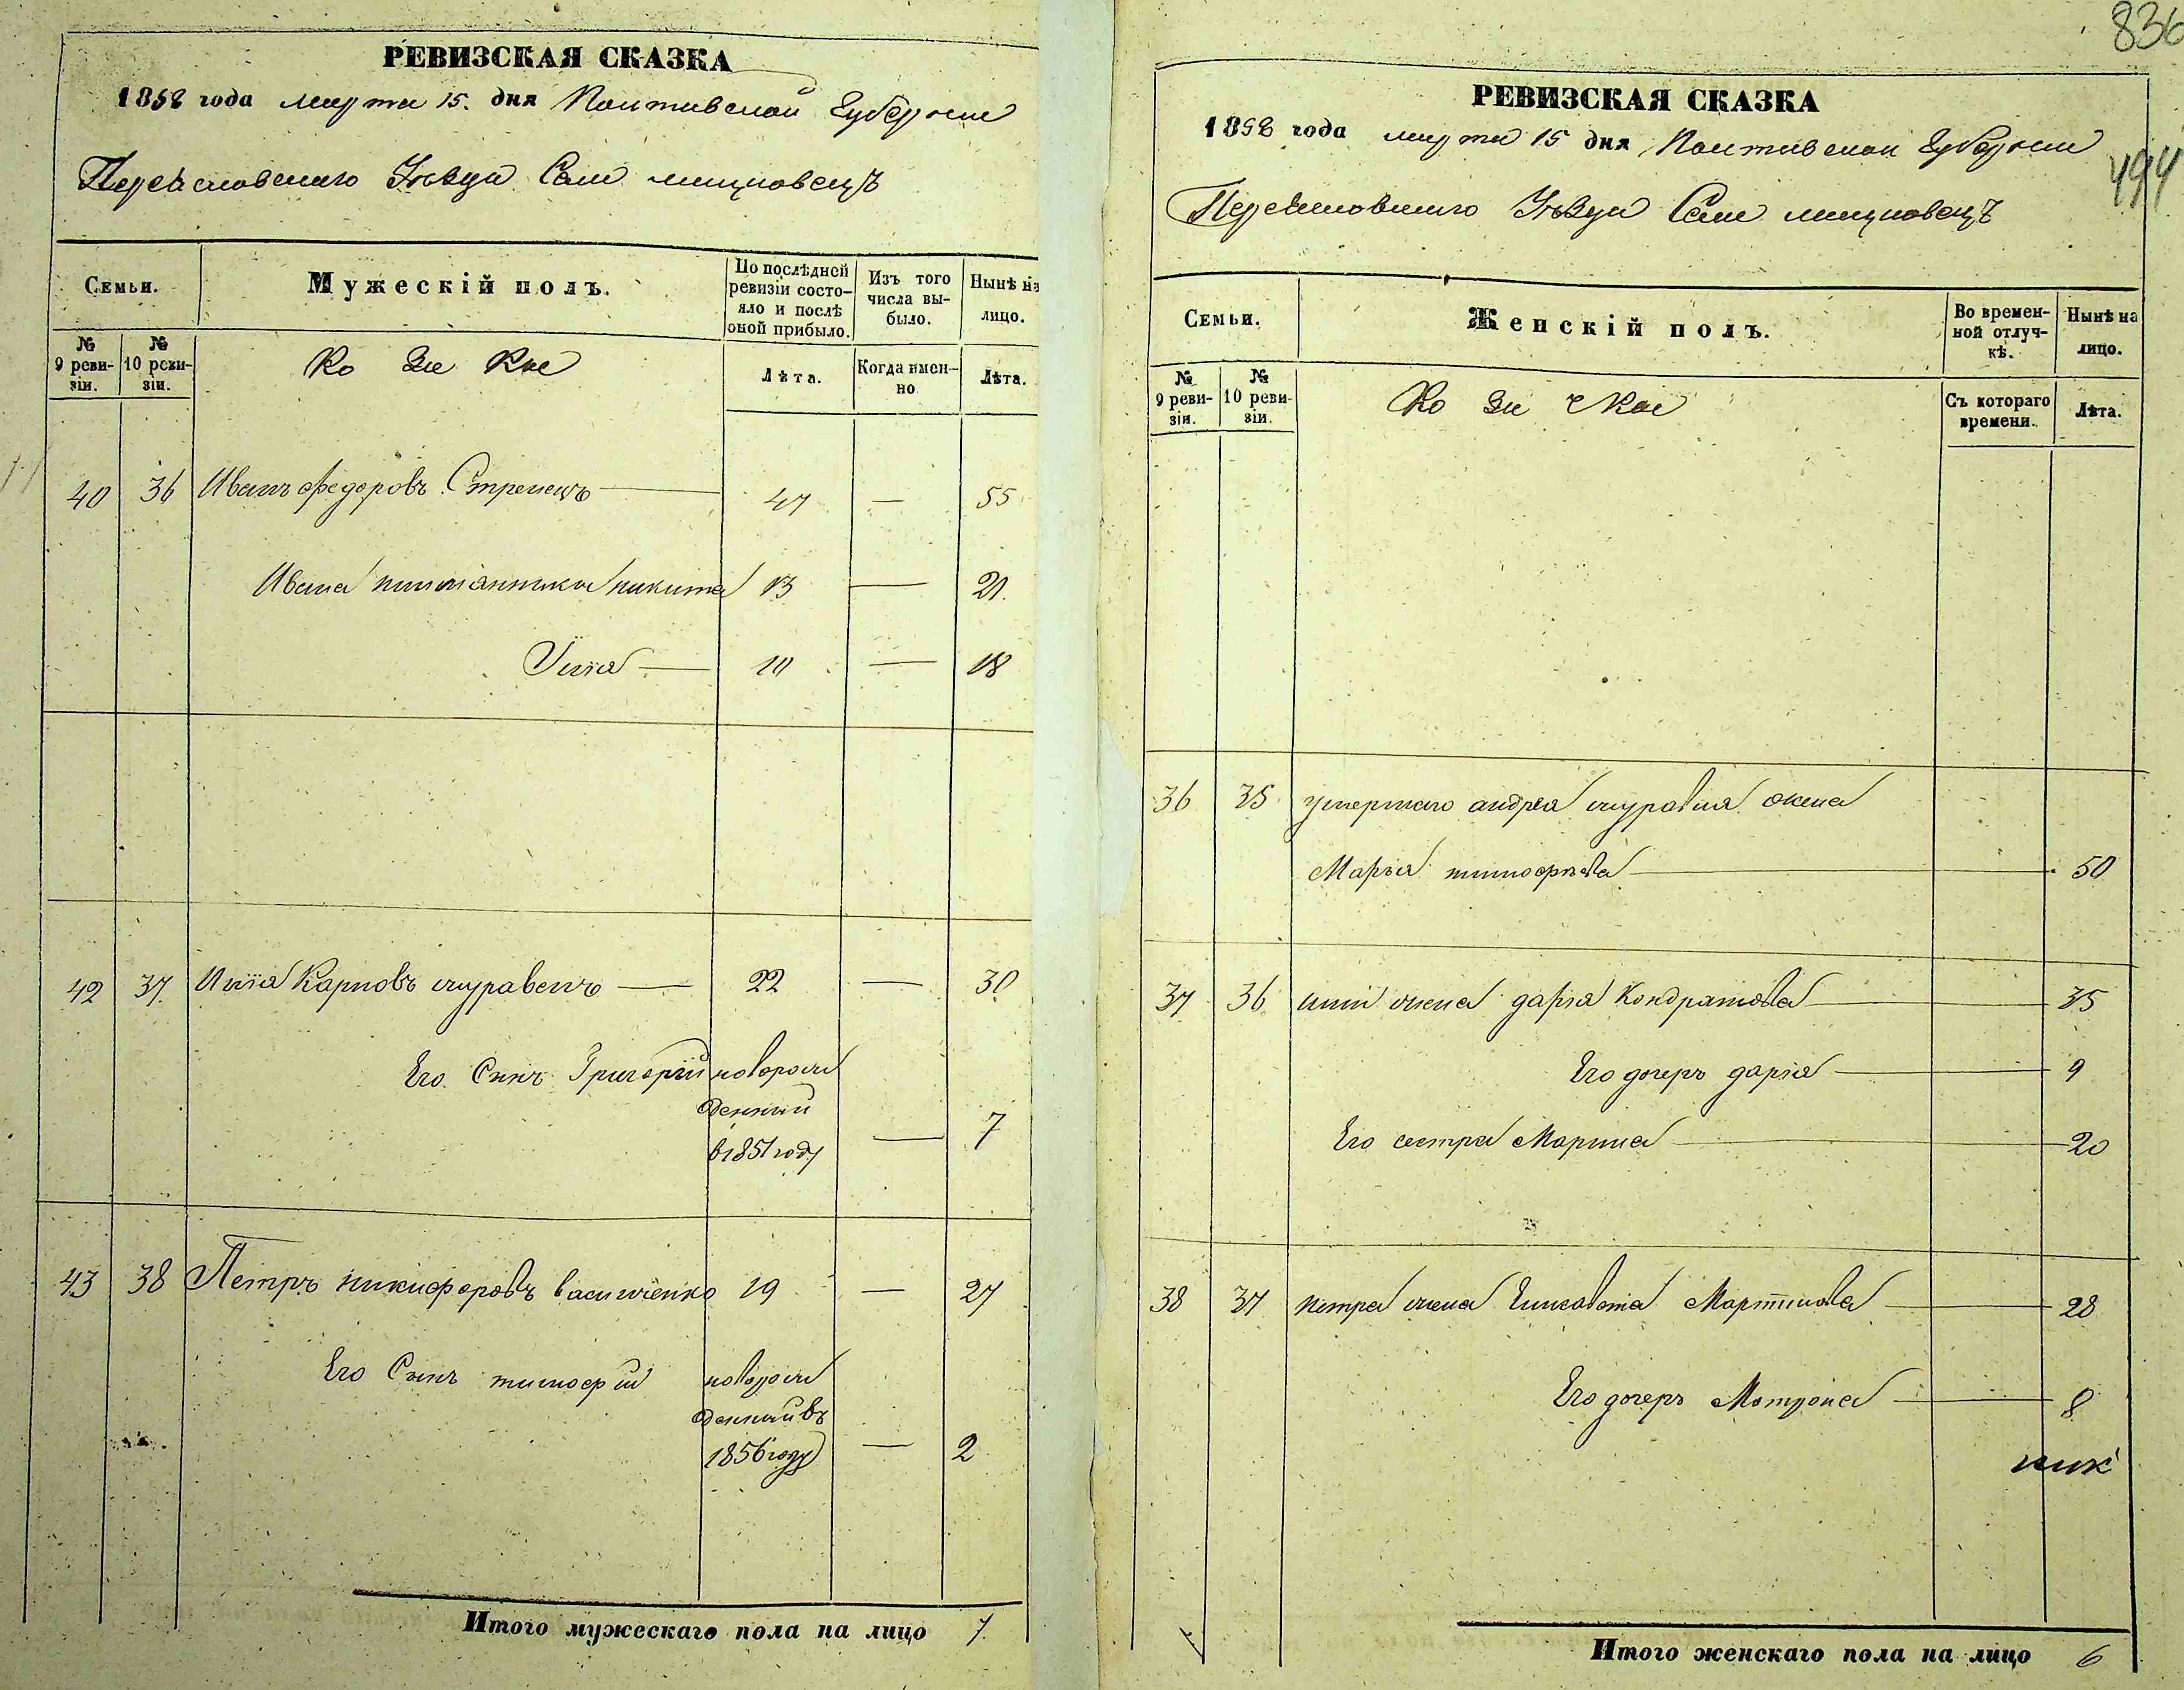 РЕВИЗСКАЯ СКАЗКА
1858 года марта 15. дня Полтавской Губернии
Переяславскаго Уѣзда Села мицаловецъ
Семьи.
Мужескій полъ.
По послѣдней ревизіи состояло и послѣ оной прибыло.
Изъ того числа выбыло.
Нынѣ на лицо.
№ 9 ревизіи.
№ 10 ревизіи.
Ко За Кие
Лѣта.
Когда именно
Лѣта.
40 36 Иванъ Федоровъ Стрелецъ — 47 — 55
Ивана племянники никита 13 — 21.
Илія — 10 — 18
42 37. Илія Карповъ журавель — 22 — 30
Его Сынъ Григорій новорож
денный
в 1851 году — 7
43 38 Петръ никифоровъ василченко 19 — 27
Его Сынъ тимофій новорож
денный въ
1856 году — 2
Итого мужескаго пола на лицо 7.
836
494
РЕВИЗСКАЯ СКАЗКА
1858 года марта 15 дня Полтавской Губернии
Переяславскаго Уѣзда Села мицаловецъ
Семьи.
Женскій полъ.
Во временной отлучкѣ.
Нынѣ на лицо.
№ 9 ревизіи.
№ 10 ревизіи.
Ко За чКие
Съ котораго времени.
Лѣта.
36 35 умершаго андрея журавля жена
Марья тимофѣева — 50
37 36 иліи жена дарія Кондратова — 35
Его дочерь дарія — 9
Его сестра Марина — 20
38 37 петра жена Елисавета Мартинова — 28
Его дочерь Мотрона — 8
Итого женскаго пола на лицо 6